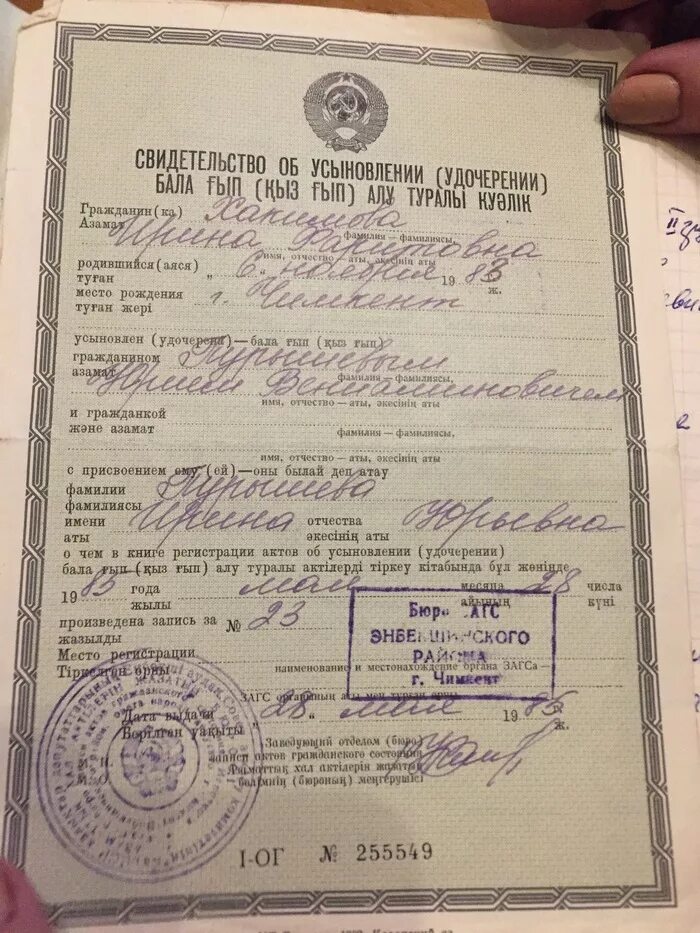 СВИДЕТЕЛЬСТВО ОБ УСЫНОВЛЕНИИ (УДОЧЕРЕНИИ)
БАЛА ҒЫП (ҚЫЗ ҒЫП) АЛУ ТУРАЛЫ КУӘЛІК
Гражданин(ка) Хакимова
Азамат фамилия – фамилиясы,
Ирина Фаритовна
имя, отчество – аты, әкесінің аты
родившийся(аяся) „6„ ноября 1983
туған ж.
место рождения г. Чимкент
туған жері
усыновлен (удочерена)—бала ғып (қыз ғып)
гражданином Пурышевым
азамат фамилия – фамилиясы,
Юрием Вениаминовичем
имя, отчество – аты, әкесінің аты
и гражданкой
және азамат фамилия – фамилиясы,
имя, отчество – аты, әкесінің аты
с присвоением ему (ей)—оны былай деп атау
фамилии Пурышева
фамилиясы
имени Ирина отчества Юрьевна
аты әкесінің аты
о чем в книге регистрации актов об усыновлении (удочерении)
бала ғып (қыз ғып) алу туралы актілерді тіркеу кітабында бұл жөнінде
1985 года мая месяца 28 числа
жылы айының күні
произведена запись за № 23
жазылды
Бюро ЗАГС
ЭНБЕКШИНСКОГО
РАЙОНА
г. Чимкент
Место регистрации
Тіркелген орны наименование и местонахождение органа ЗАГСа—
ЗАГС органының аты мен тұрған орны
Дата выдачи „28„ мая 1985
Берілген уақыты ж.
Заведующий отделом (бюро)
записи актов гражданского состояния
Азаматтық хал актілерін жазатын
бөлімнің (бюроның) меңгерушісі
М. П.
М. О.
I-ОГ № 255549